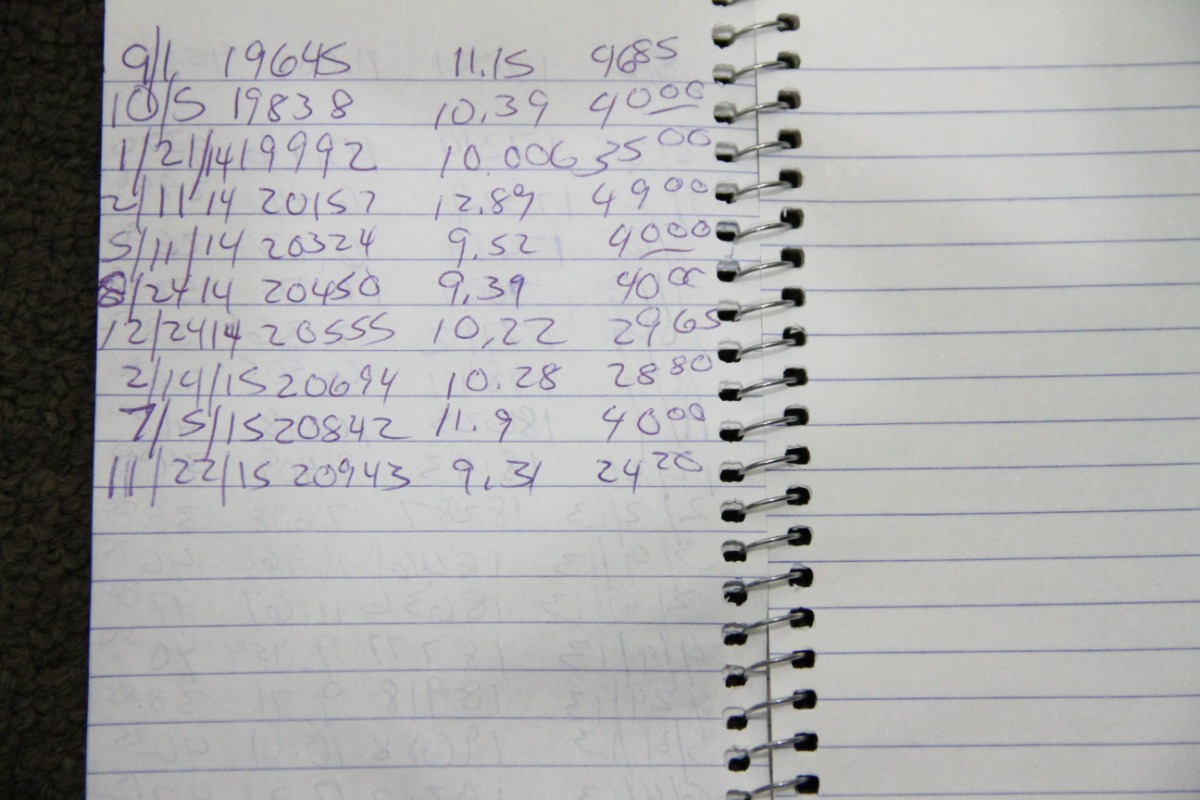 9/1 19645 11.15 46 85
10/5 19838 10.39 40 00
1/21/14 19992 10.006 35 00
2/11/14 20157 12.89 49 00
5/11/14 20324 9.52 40 00
8/24/14 20450 9.39 40 00
12/24/14 20555 10.22 29 65
2/14/15 20694 10.28 28 80
7/5/15 20842 11.9 40 00
11/22/15 20943 9.31 24 20